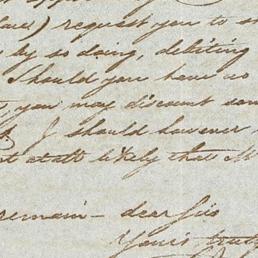 request you to
by so doing, debiting
should you have no
you may discount
I should however
at all likely that M
remain - dear Sir
Yours truly